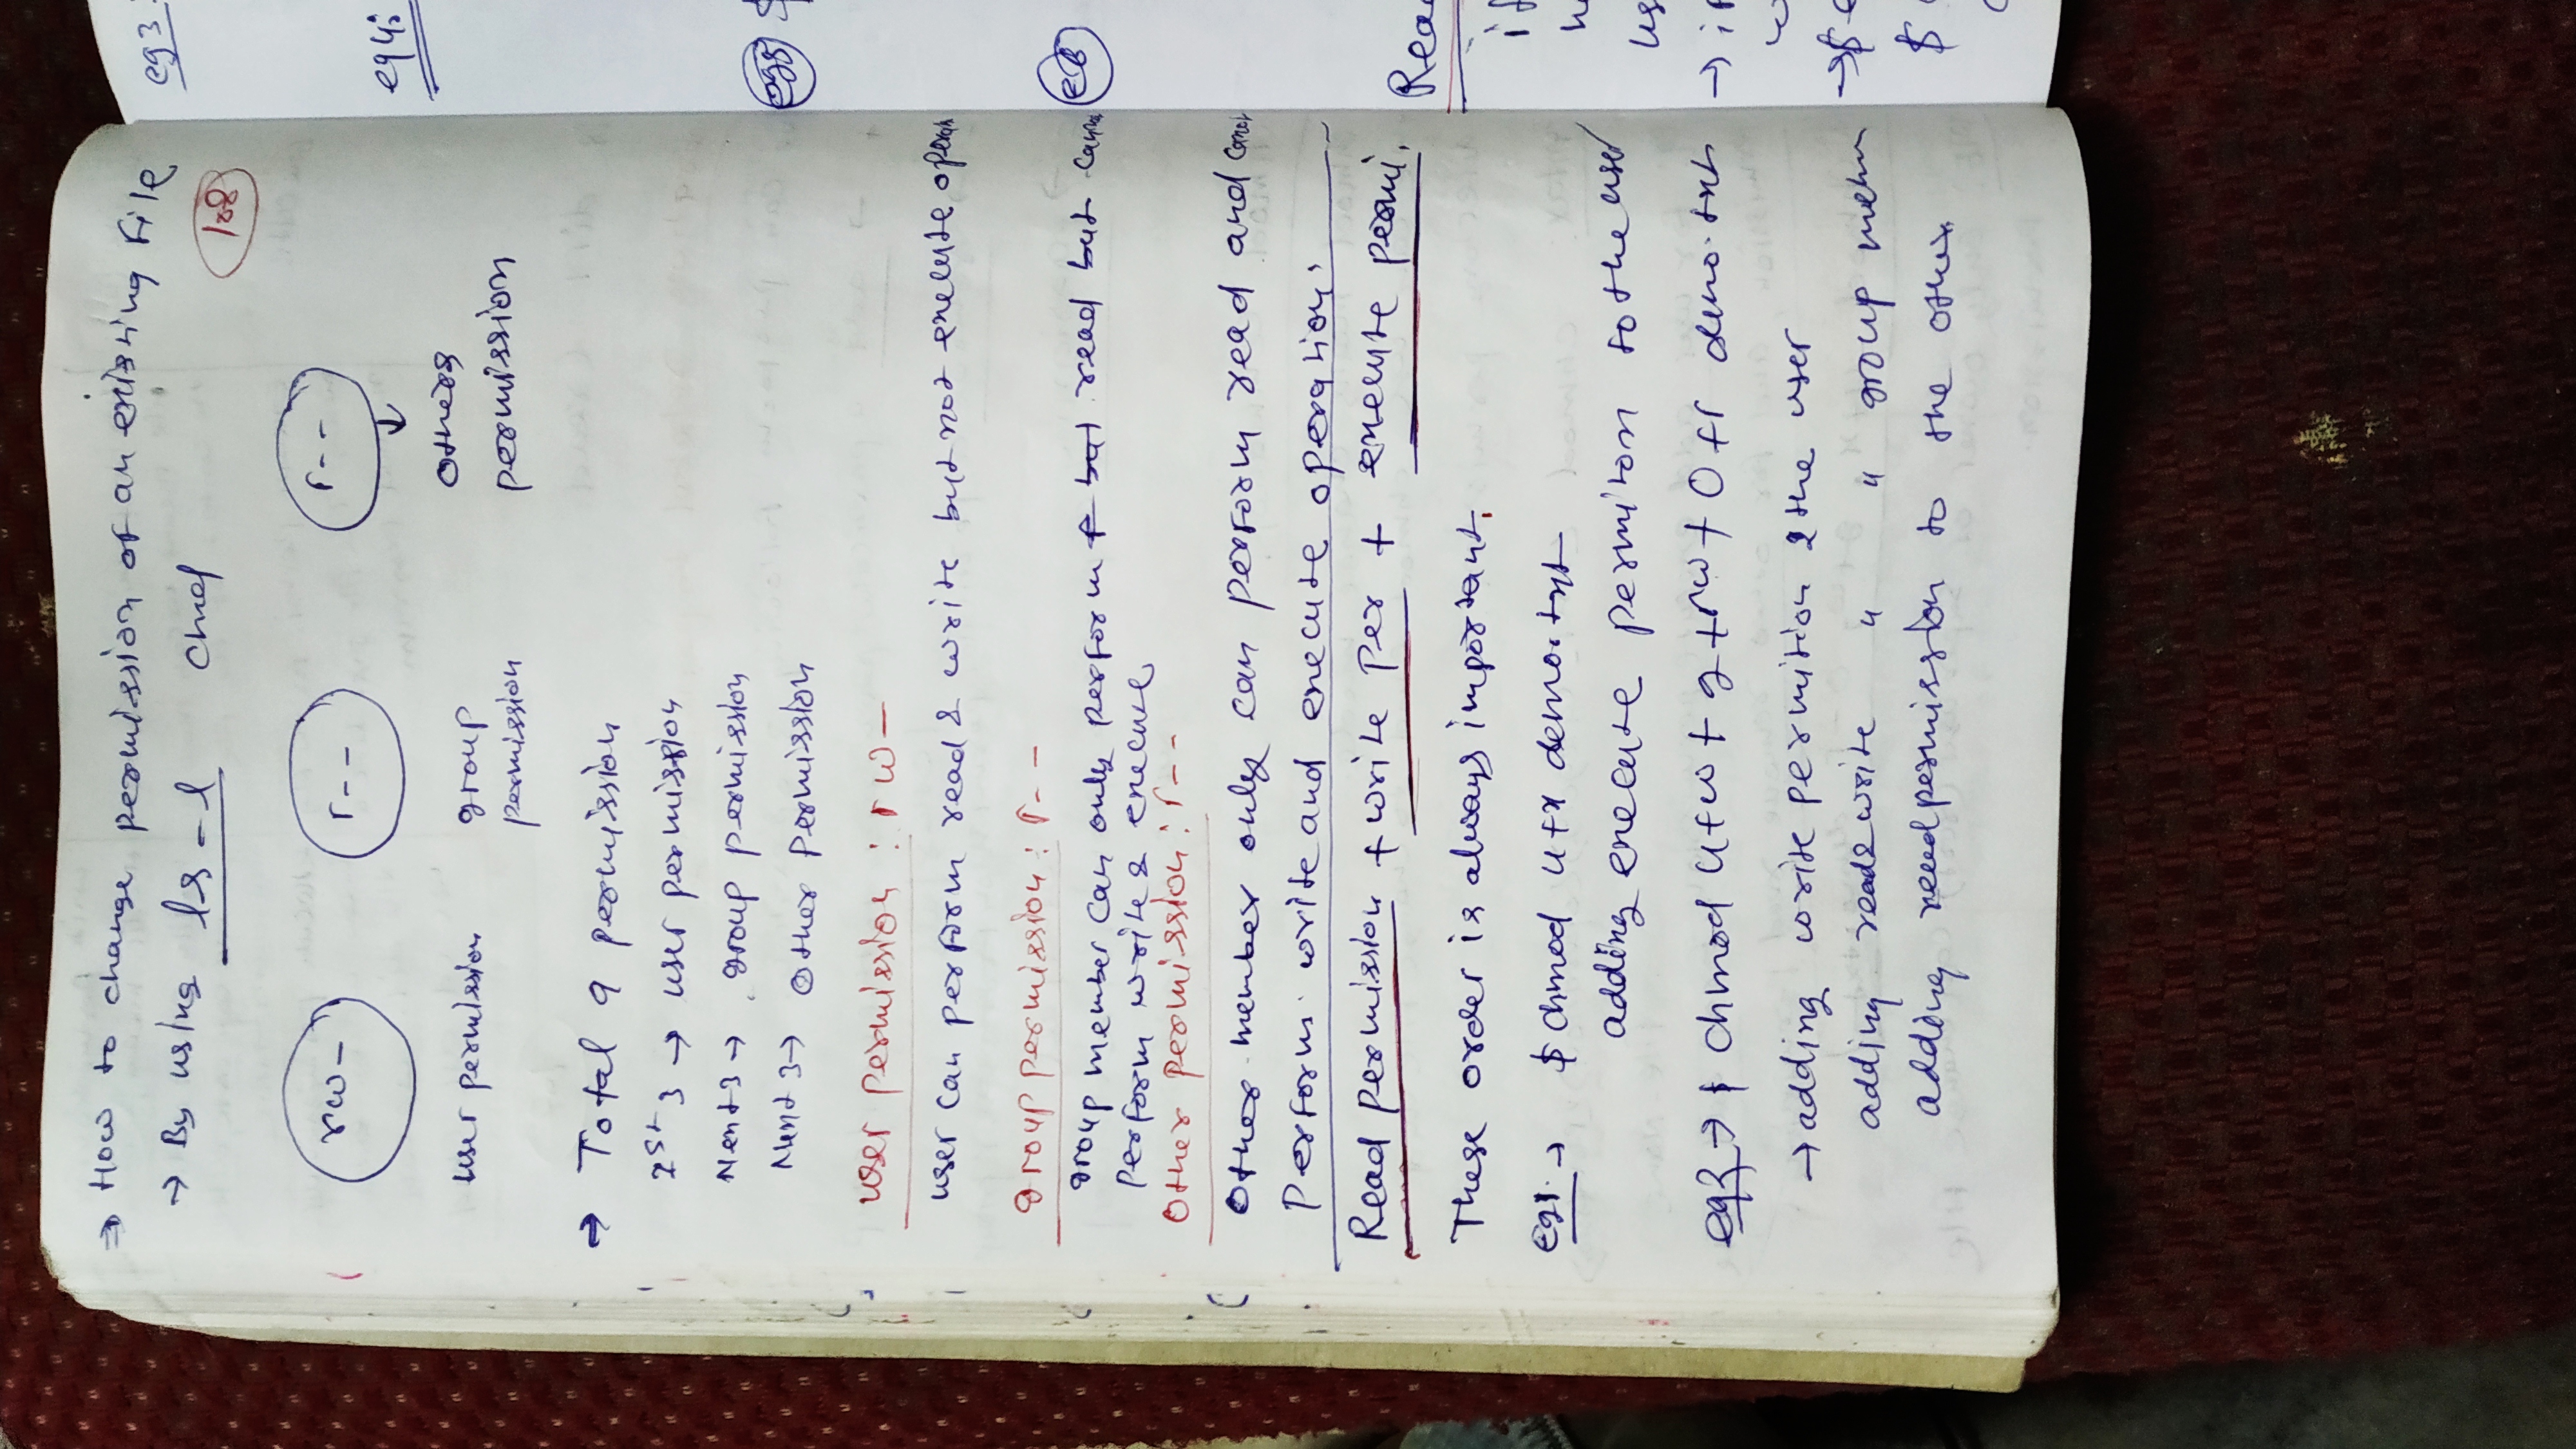 ⇒ How to change permission of an existing file
→ By using ls -l cmd
108
rw- r-- r--
↓
user permission group permission others permission
⇒ Total 9 permission
1st 3 → user permission
Next 3 → group permission
Next 3 → other permission
user permission : rw-
user can perform read & write but not execute
group permission : r--
group member can only perform read but
perform write & execute
other permission : r--
other member only can perform read and
perform write and execute operation.
Read permission + write per + execute permi.
These order is always important.
eg1. → $ chmod u+x demo.txt
adding execute permiton to the user
eg2 → $ chmod u+w + g+rw + o+r demo.txt
→ adding write permition 2 the user
adding read & write " " group
adding read permission to the other
eg3
eg4:
eg5 $
Read
if
us
→ if
→ $
$